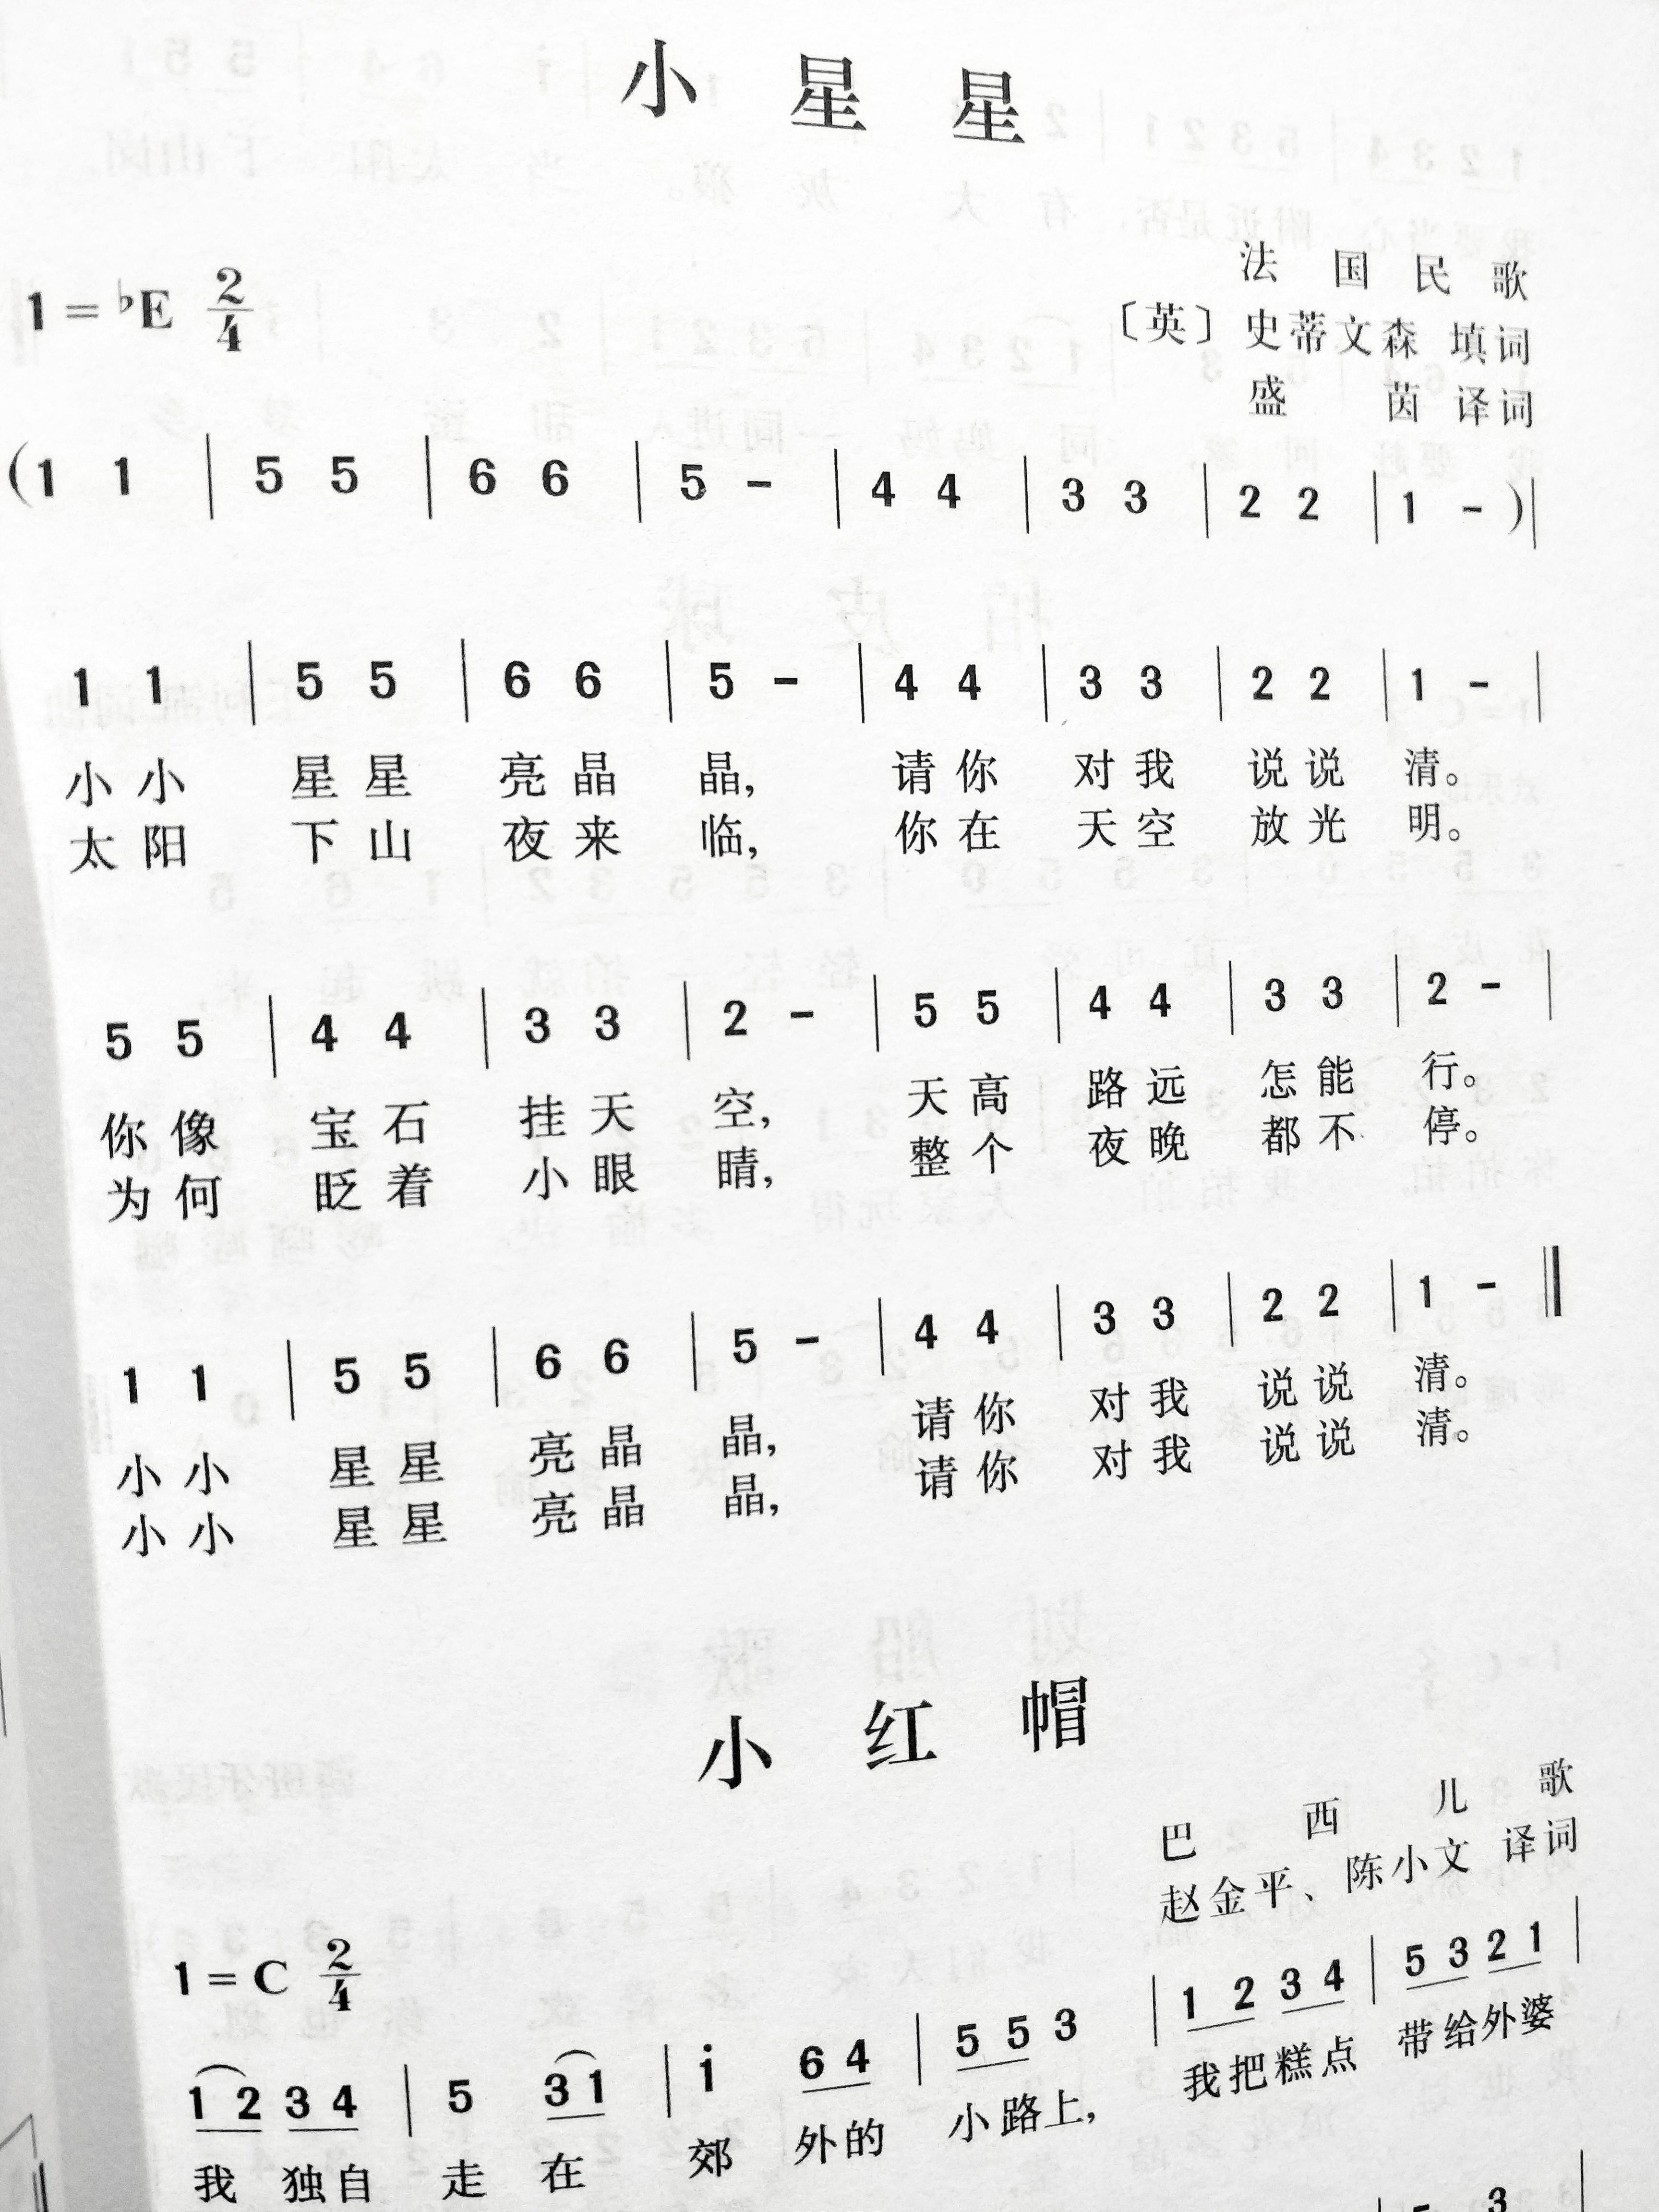 小 星 星
法 国 民 歌
1 = ♭E 2/4 〔英〕史蒂文森 填词
盛 茵 译词
(1 1 | 5 5 | 6 6 | 5 - | 4 4 | 3 3 | 2 2 | 1 - )|
1 1 | 5 5 | 6 6 | 5 - | 4 4 | 3 3 | 2 2 | 1 - |
小 小 星 星 亮 晶 晶, 请 你 对 我 说 说 清。
太 阳 下 山 夜 来 临, 你 在 天 空 放 光 明。
5 5 | 4 4 | 3 3 | 2 - | 5 5 | 4 4 | 3 3 | 2 - |
你 像 宝 石 挂 天 空, 天 高 路 远 怎 能 行。
为 何 眨 着 小 眼 睛, 整 个 夜 晚 都 不 停。
1 1 | 5 5 | 6 6 | 5 - | 4 4 | 3 3 | 2 2 | 1 - ‖
小 小 星 星 亮 晶 晶, 请 你 对 我 说 说 清。
小 小 星 星 亮 晶 晶, 请 你 对 我 说 说 清。
小 红 帽
巴 西 儿 歌
赵金平、陈小文 译词
1 = C 2/4
1 2 3 4 | 5 3 1 | i 6 4 | 5 5 3 | 1 2 3 4 | 5 3 2 1 |
我 独自 走 在 郊 外的 小路上, 我把糕点 带给外婆
3